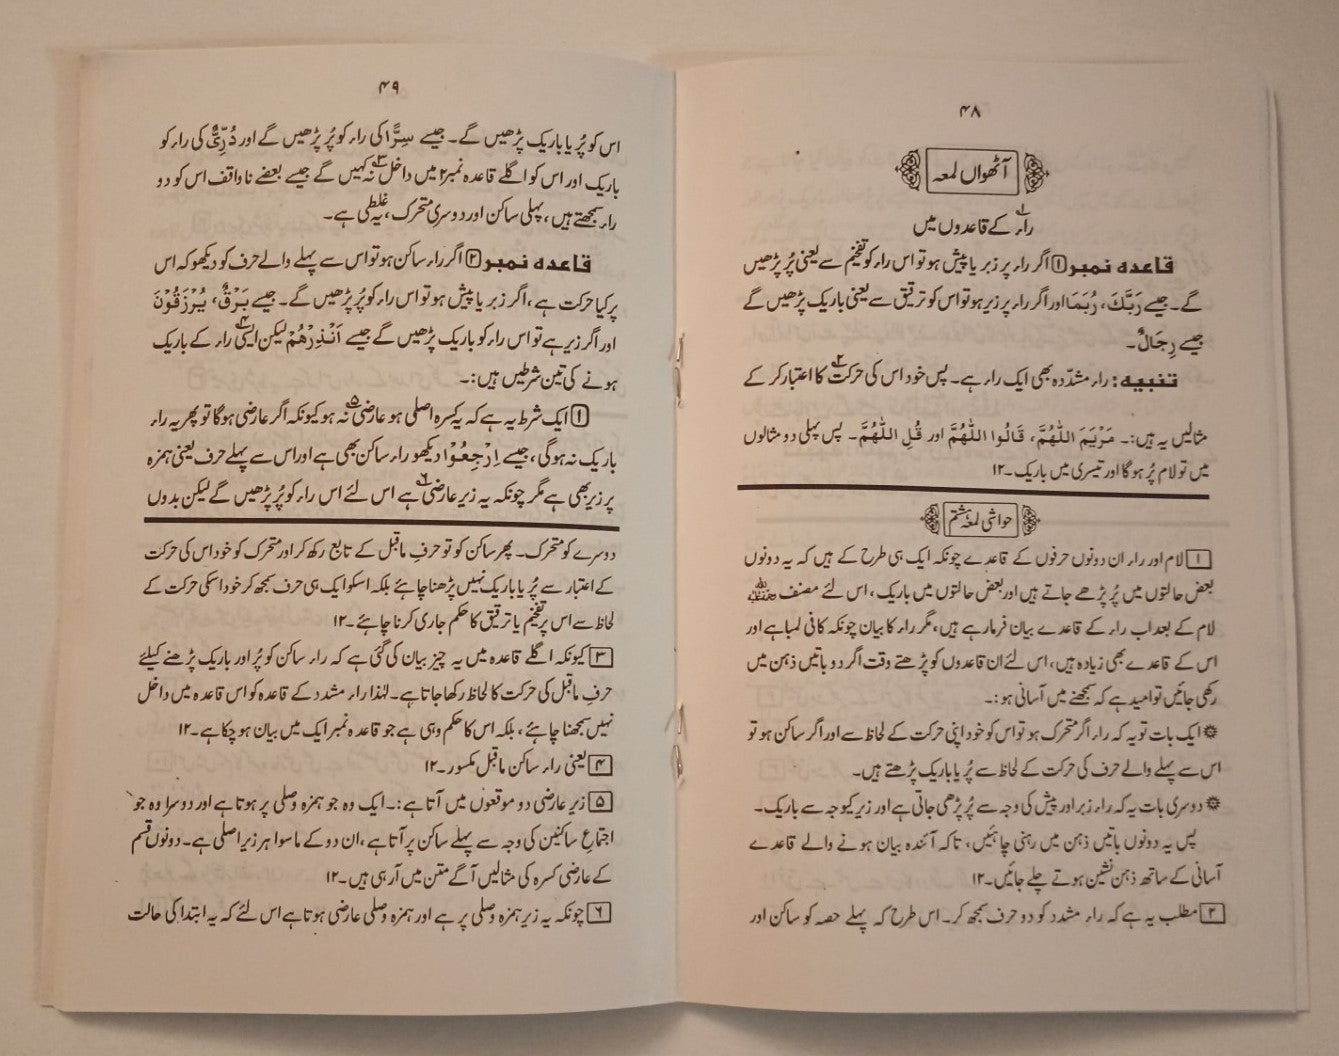 ۴۸
آٹھواں لمعہ
راء۱ کے قاعدوں میں
قاعدہ نمبر ۱ اگر راء پر زبر یا پیش ہو تو اس راء کو تفخیم سے یعنی پُر پڑھیں
گے۔ جیسے رَبَّكَ، رُبَمَا اور اگر راء پر زیر ہو تو اس کو ترقیق سے یعنی باریک پڑھیں گے
جیسے رِجَالٌ۔
تنبیہ: راء مشدّدہ بھی ایک راء ہے۔ پس خود اس کی حرکت۲ کا اعتبار کر کے
مثالیں یہ ہیں:۔ مَرْيَمَ اللّٰهُمَّ، قَالُوا اللّٰهُمَّ اور قُلِ اللّٰهُمَّ۔ پس پہلی دو مثالوں
میں تو لام پُر ہوگا اور تیسری میں باریک۔ ۱۲
حواشی لمعۂ ہشتم
۱ لام اور راء ان دونوں حرفوں کے قاعدے چونکہ ایک ہی طرح کے ہیں کہ یہ دونوں
بعض حالتوں میں پُر پڑھے جاتے ہیں اور بعض حالتوں میں باریک، اس لئے مصنف رحمہ اللہ
لام کے بعد اب راء کے قاعدے بیان فرما رہے ہیں، مگر راء کا بیان چونکہ کافی لمبا ہے اور
اس کے قاعدے بھی زیادہ ہیں، اس لئے ان قاعدوں کو پڑھتے وقت اگر دو باتیں ذہن میں
رکھی جائیں تو امید ہے کہ سمجھنے میں آسانی ہو:۔
۞ ایک بات تو یہ کہ راء اگر متحرک ہو تو اس کو خود اپنی حرکت کے لحاظ سے اور اگر ساکن ہو تو
اس سے پہلے والے حرف کی حرکت کے لحاظ سے پُر یا باریک پڑھتے ہیں۔
۞ دوسری بات یہ کہ راء زبر اور پیش کی وجہ سے پُر پڑھی جاتی ہے اور زیر کیوجہ سے باریک۔
پس یہ دونوں باتیں ذہن میں رہنی چاہئیں، تاکہ آئندہ بیان ہونے والے قاعدے
آسانی کے ساتھ ذہن نشین ہوتے چلے جائیں۔ ۱۲
۲ مطلب یہ ہے کہ راء مشدد کو دو حرف سمجھ کر۔ اس طرح کہ پہلے حصہ کو ساکن اور
۴۹
اس کو پُر یا باریک پڑھیں گے۔ جیسے سِرًّا کی راء کو پُر پڑھیں گے اور دُرِّيٌّ کی راء کو
باریک اور اس کو اگلے قاعدہ نمبر ۲ میں داخل۳ نہ کہیں گے جیسے بعضے ناواقف اس کو دو
راء سمجھتے ہیں، پہلی ساکن اور دوسری متحرک، یہ غلطی ہے۔
قاعدہ نمبر ۲ اگر راء ساکن ہو تو اس سے پہلے والے حرف کو دیکھو کہ اس
پر کیا حرکت ہے، اگر زبر یا پیش ہو تو اس راء کو پُر پڑھیں گے۔ جیسے بَرْقٌ، يُرْزَقُوْنَ
اور اگر زیر ہے تو اس راء کو باریک پڑھیں گے جیسے اَنْذِرْهُمْ لیکن ایسی۴ راء کے باریک
ہونے کی تین شرطیں ہیں:۔
۱ ایک شرط یہ ہے کہ یہ کسرہ اصلی ہو عارضی۵ نہ ہو کیونکہ اگر عارضی ہوگا تو پھر یہ راء
باریک نہ ہوگی، جیسے اِرْجِعُوْا دیکھو راء ساکن بھی ہے اور اس سے پہلے حرف یعنی ہمزہ
پر زیر بھی ہے مگر چونکہ یہ زیر عارضی۶ ہے اس لئے اس راء کو پُر پڑھیں گے لیکن بدوں
دوسرے کو متحرک۔ پھر ساکن کو تو حرفِ ماقبل کے تابع رکھ کر اور متحرک کو خود اس کی حرکت
کے اعتبار سے پُر یا باریک نہیں پڑھنا چاہئے بلکہ اسکو ایک ہی حرف سمجھ کر خود اسکی حرکت کے
لحاظ سے اس پر تفخیم یا ترقیق کا حکم جاری کرنا چاہئے۔ ۱۲
۳ کیونکہ اگلے قاعدہ میں یہ چیز بیان کی گئی ہے کہ راء ساکن کو پُر اور باریک پڑھنے کیلئے
حرفِ ماقبل کی حرکت کا لحاظ رکھا جاتا ہے۔ لہٰذا راء مشدد کے قاعدہ کو اس قاعدہ میں داخل
نہیں سمجھنا چاہئے، بلکہ اس کا حکم وہی ہے جو قاعدہ نمبر ایک میں بیان ہو چکا ہے۔ ۱۲
۴ یعنی راء ساکن ماقبل مکسور۔ ۱۲
۵ زیر عارضی دو موقعوں میں آتا ہے:۔ ایک وہ جو ہمزہ وصلی پر ہوتا ہے اور دوسرا وہ جو
اجتماعِ ساکنین کی وجہ سے پہلے ساکن پر آتا ہے، ان دو کے ماسوا ہر زیر اصلی ہے۔ دونوں قسم
کے عارضی کسرہ کی مثالیں آگے متن میں آ رہی ہیں۔ ۱۲
۶ چونکہ یہ زیر ہمزہ وصلی پر ہے اور ہمزہ وصلی عارضی ہوتا ہے اس لئے کہ یہ ابتدا کی حالت